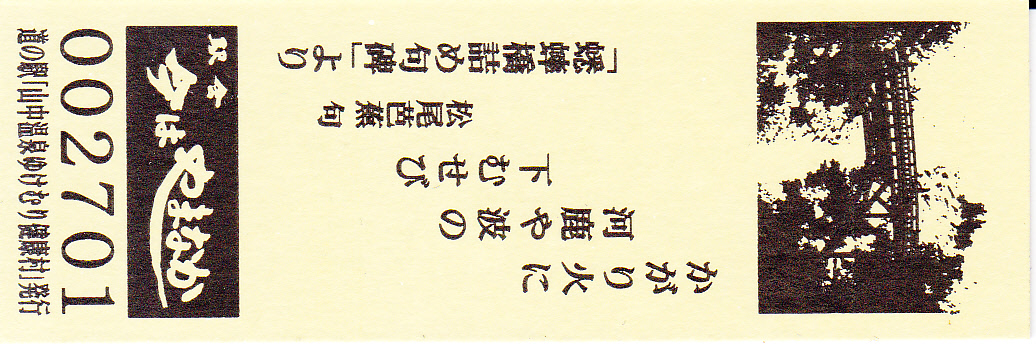 かがり火に
河鹿や波の
下むせび
松尾芭蕉句
「蟋蟀橋詰め句碑」より
今は
やまなか
002701
道の駅「山中温泉ゆけむり健康村」発行